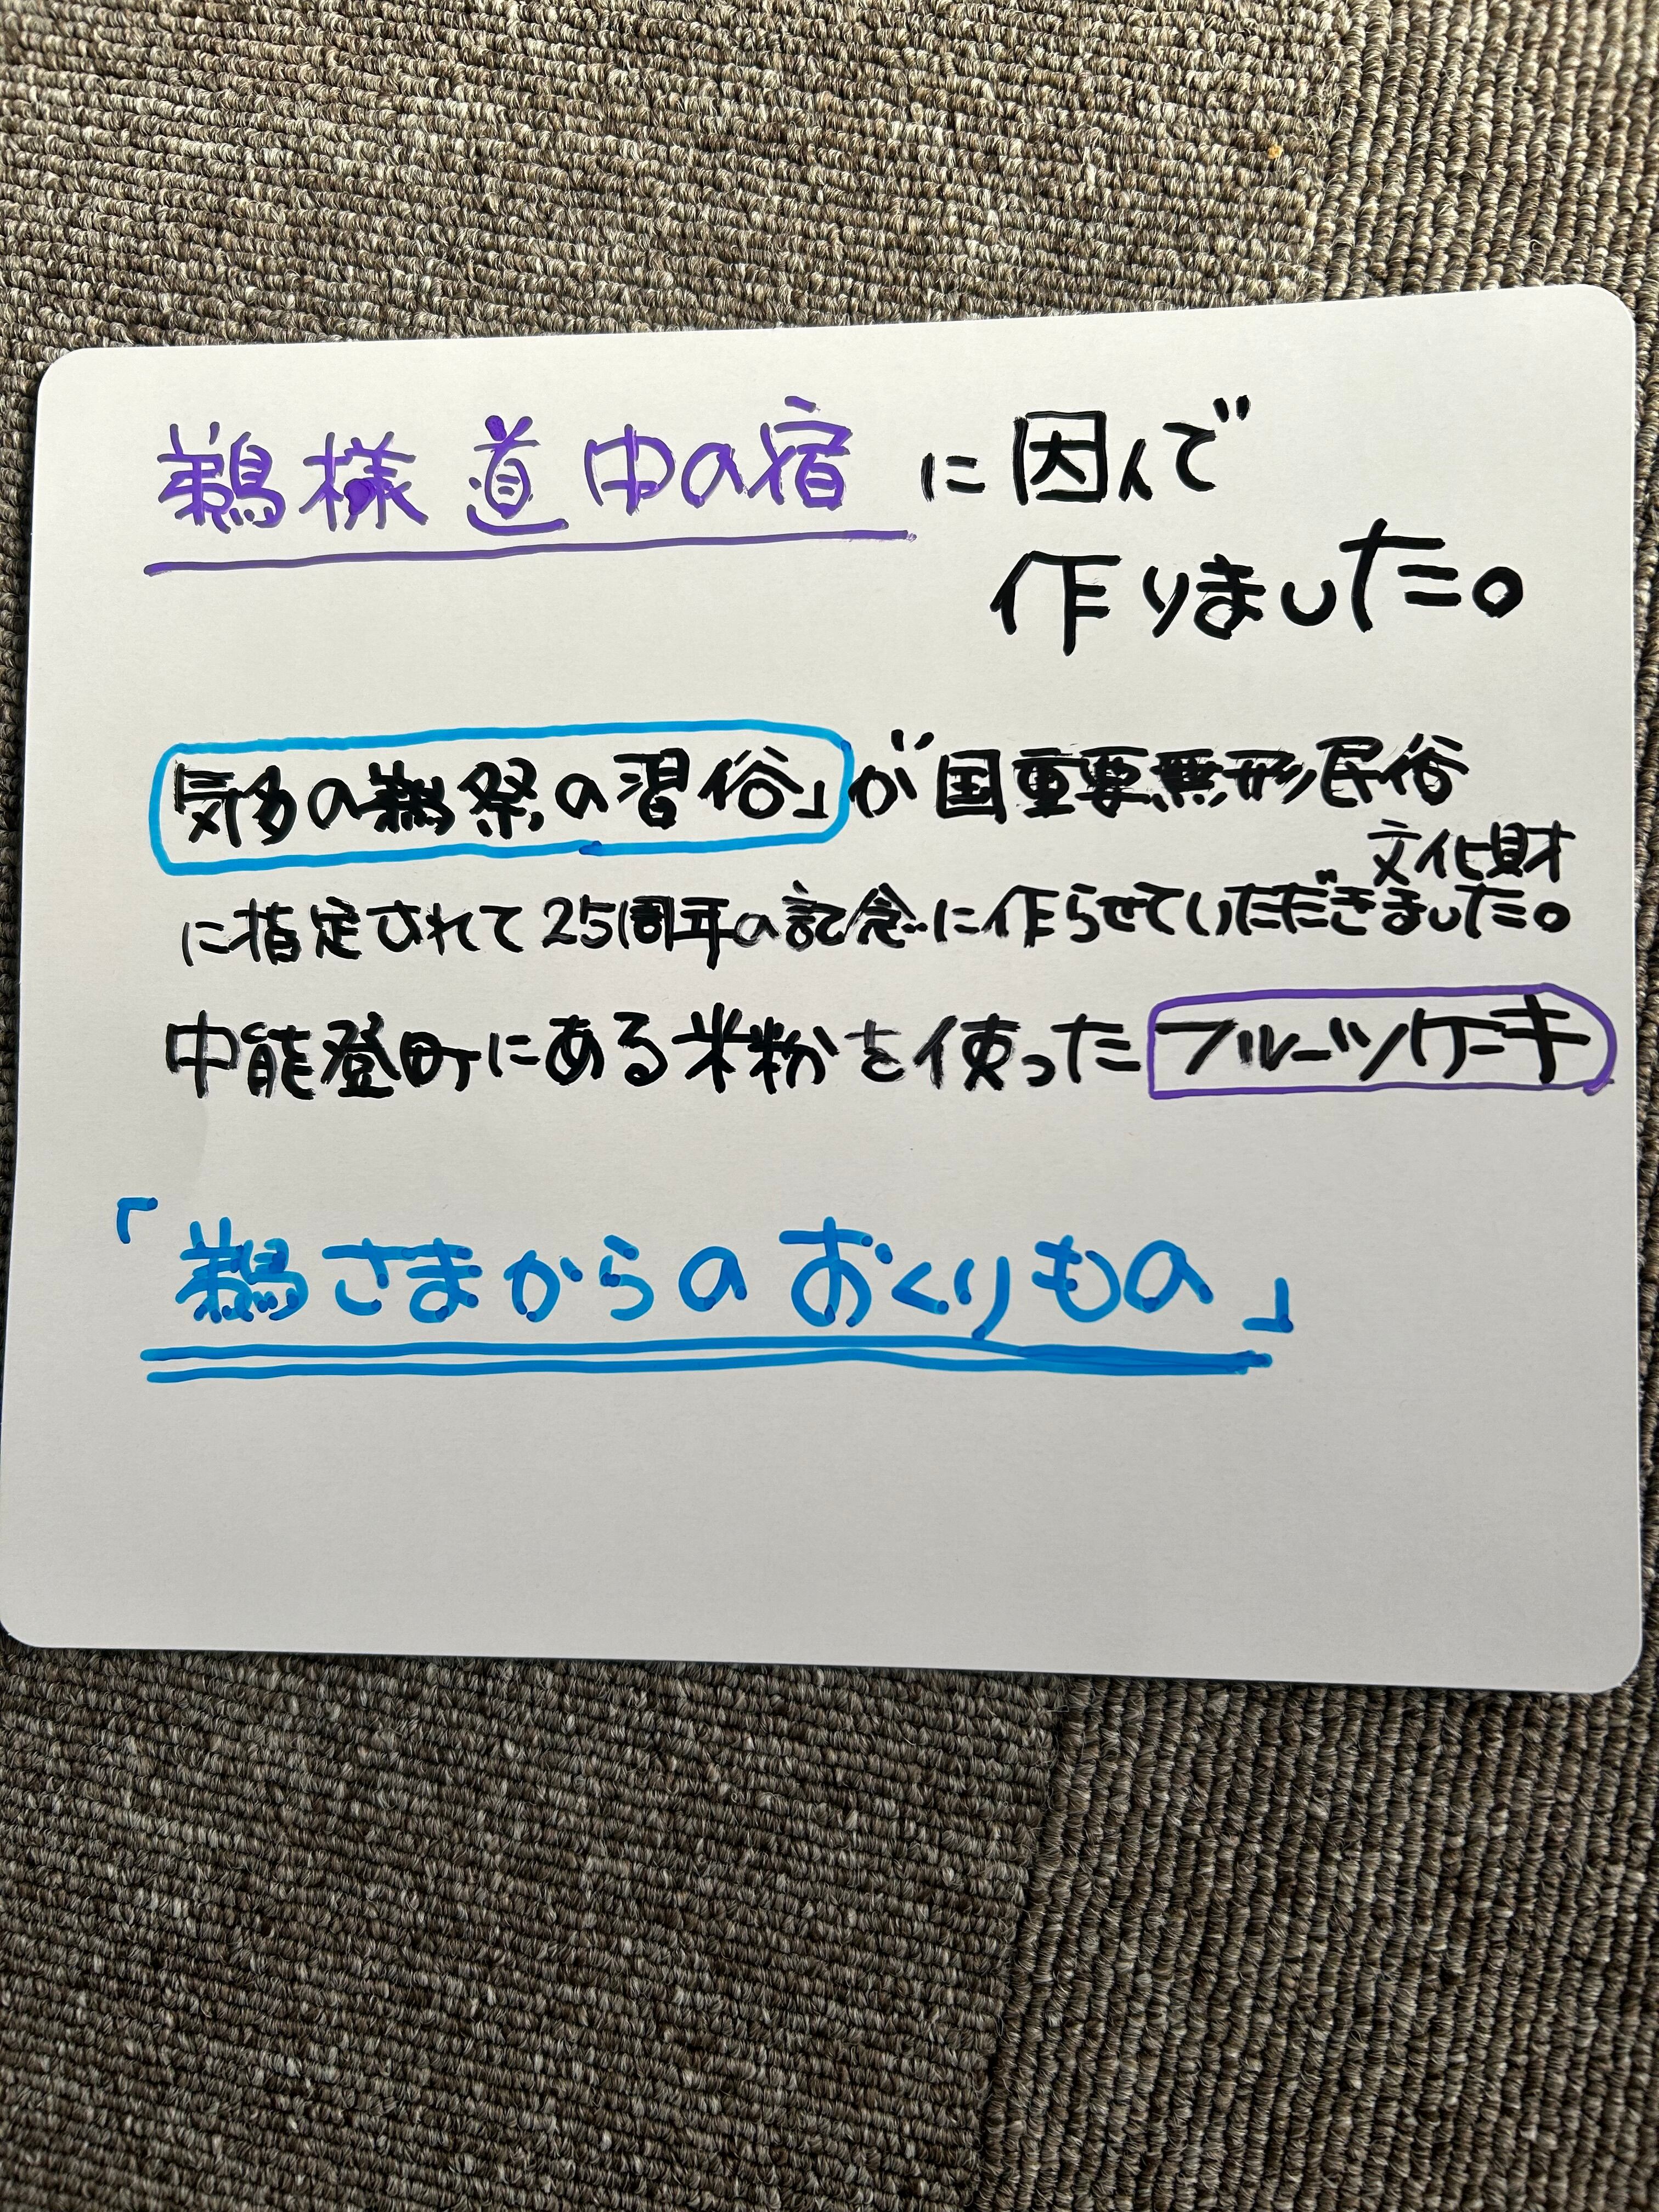 鵜様道中の宿に因んで
作りました。
「気多の鵜祭の習俗」が国重要無形民俗
文化財
に指定されて25周年の記念に作らせていただきました。
中能登町にある米粉を使ったフルーツケーキ
「鵜さまからのおくりもの」